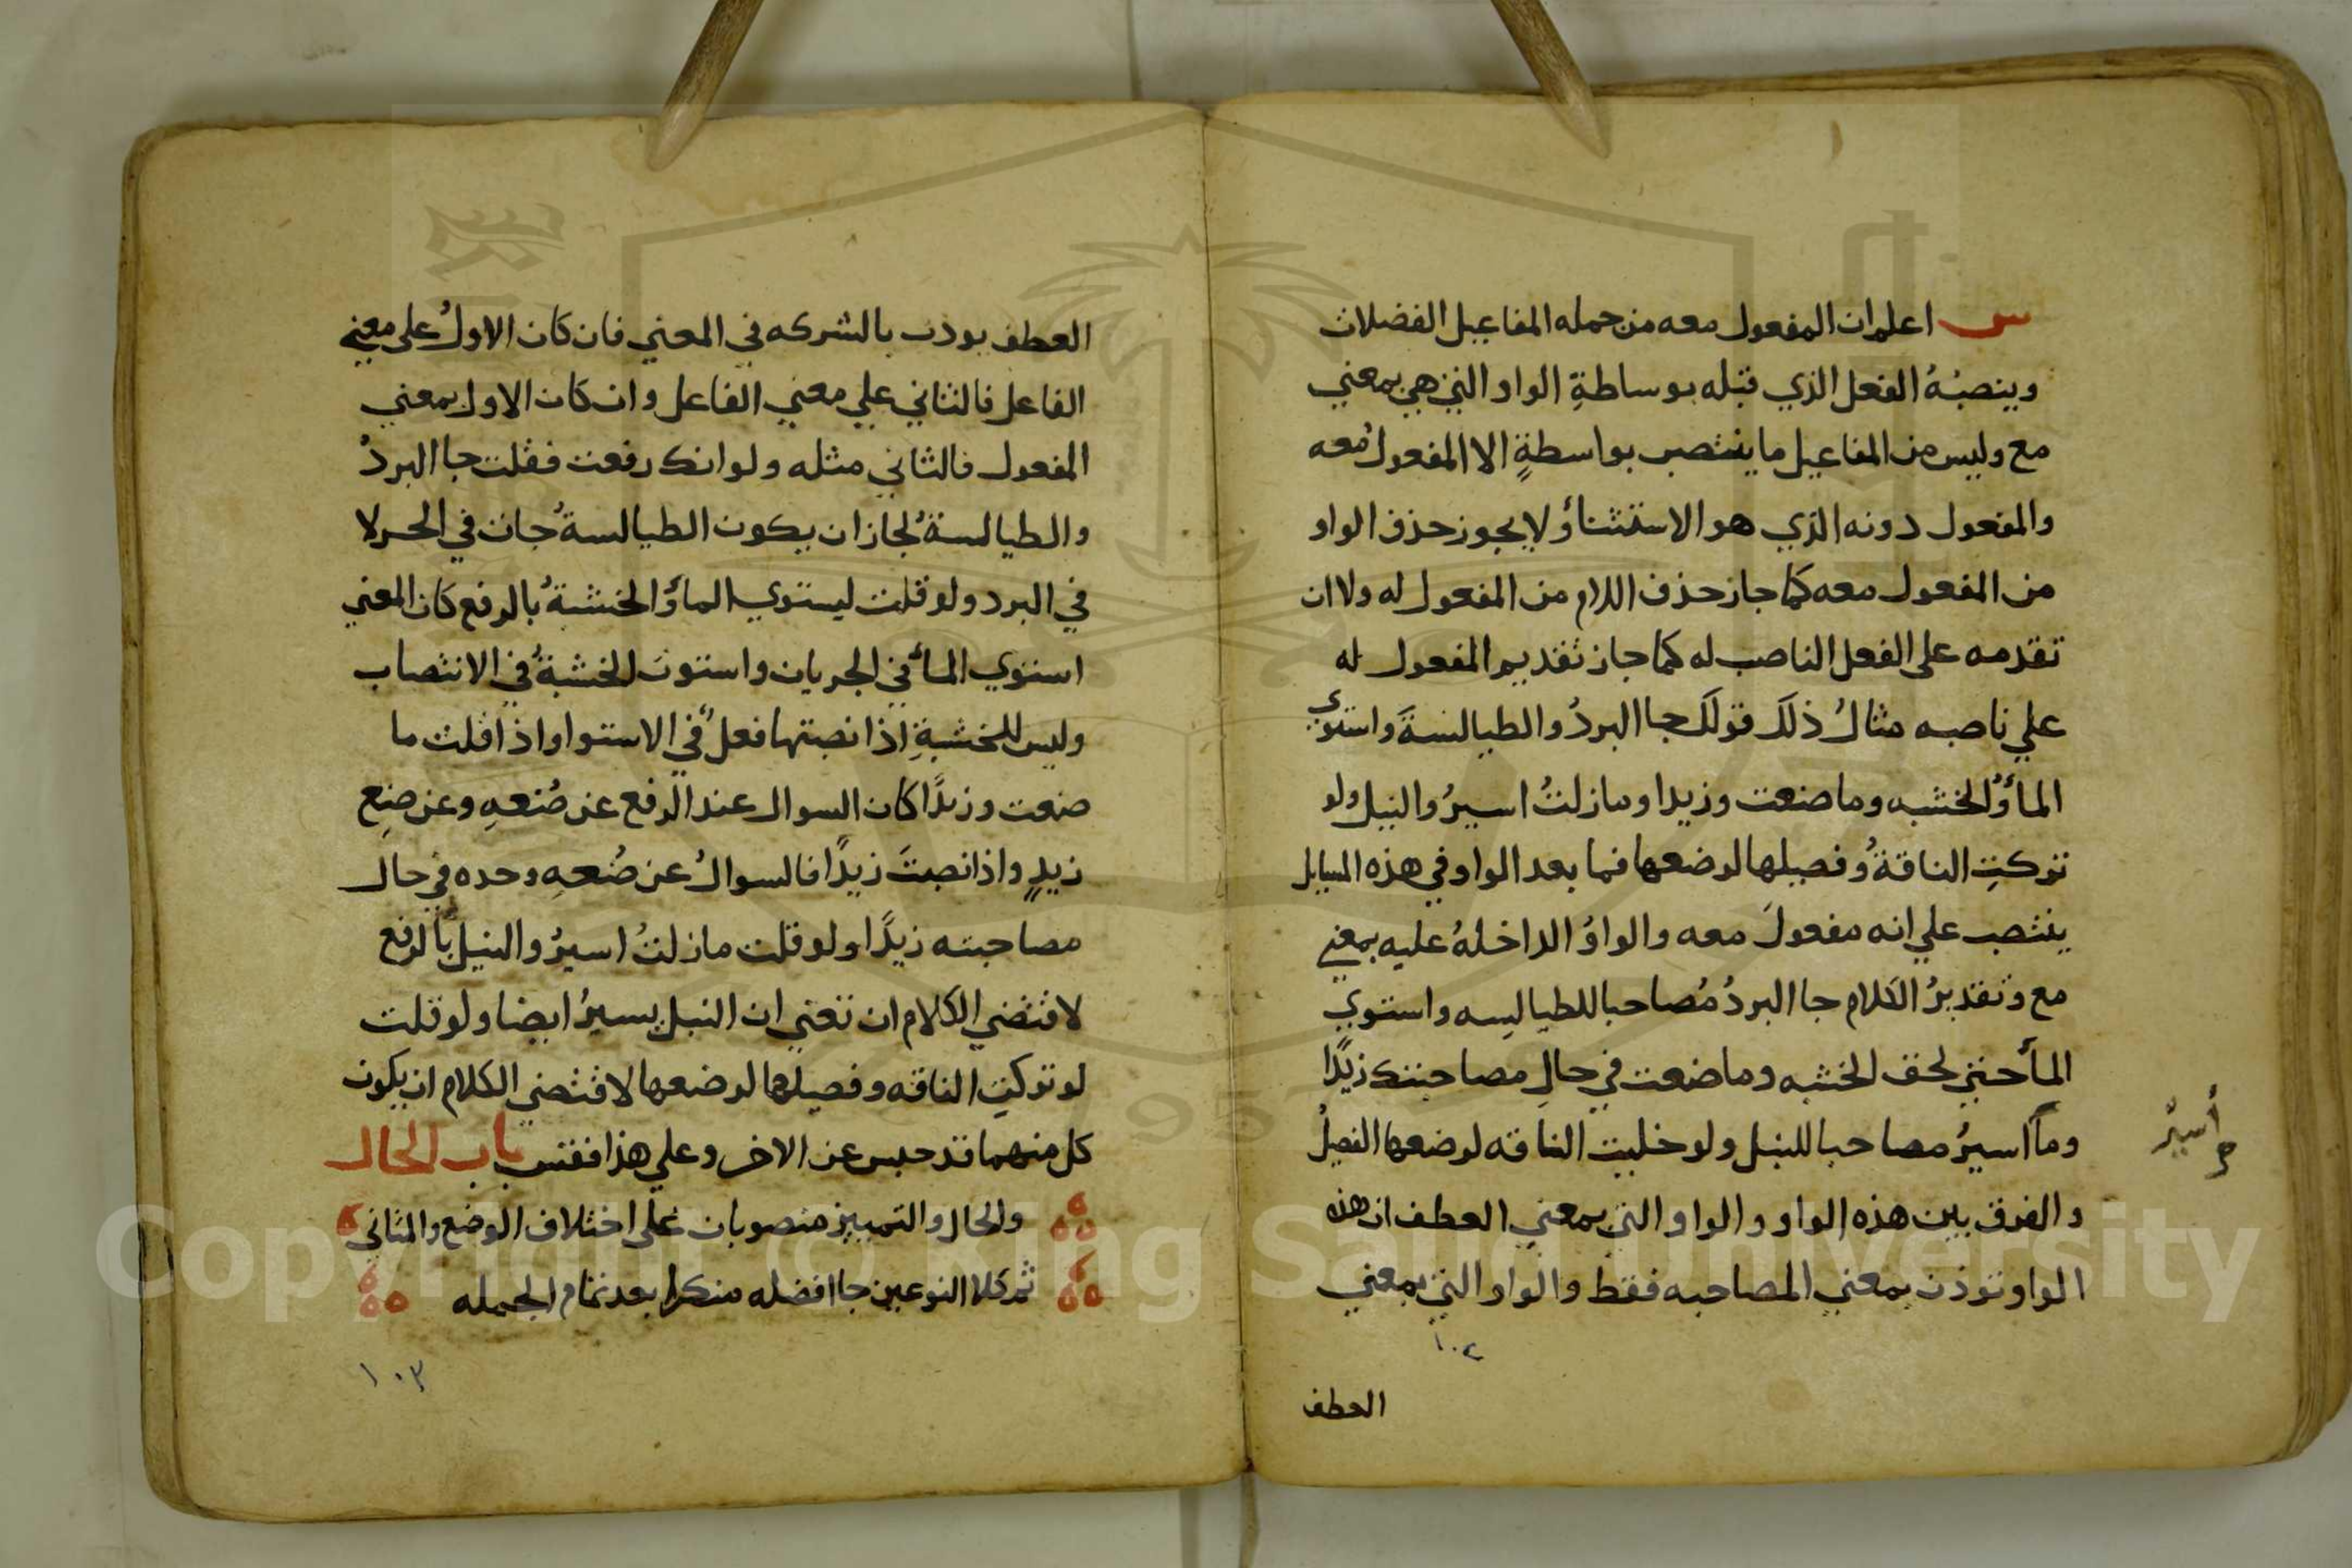 س اعلم ان المفعول معه من جمله المفاعيل الفضلات
وينصبُهُ الفعل الذي قبله بوساطةِ الواو التي هي بمعني
مع وليس من المفاعيل ما ينتصب بواسطةٍ الا المفعولُ معه
والمفعول دونه الذي هو الاستثناؤ ولا يجوز حذف الواو
من المفعول معه كما جاز حذف اللام من المفعول له ولا ان
تقدمه على الفعل الناصب له كما جاز تقديم المفعول له
علي ناصبه مثالُ ذلكَ قولكَ جا البردُ والطيالسةَ واستوي
الماؤُ والخشبه وما صنعت وزيدا وما زلتُ اسيرُ والنيل ولو
تركتِ الناقةُ وفصيلها لرضعها فما بعد الواو في هذه المسايل
ينتصب علي انه مفعولَ معه والواوُ الداخلهُ عليه بمعني
مع وتقديرُ الكلام جا البردُ مُصاحبا للطيالِسه واستوي
المأ حتي لحق الخشبه وما صنعت في حالِ مصاحبتك زيدًا
وما اسيرُ مصاحبا للنيل ولو خليت الناقه لرضعها الفصيلُ
أسيرُ
والفرق بين هذه الواو والواو التي بمعني العطف ان هذه
الواو توذن بمعني المصاحبه فقط والواو التي بمعني
١٠٢
العطف
العطف يوذن بالشركه في المعني فان كان الاولُ على معني
الفاعل فالثاني علي معني الفاعل وان كان الاول بمعني
المفعول فالثاني مثله ولو انك رفعت فقلت جا البردُ
والطيالسةُ لجاز ان يكون الطيالسةُ جات في الحر لا
في البرد ولو قلت ليستوي الماؤُ والخشبةُ بالرفع كان المعني
استوي المأ في الجريان واستوت الخشبةُ في الانتصاب
وليس للخشبةِ اذا نصبتها فعلٌ في الاستوا واذا قلت ما
صنعت وزيدًا كان السوال عند الرفع عن صُنعهِ وعن صنِع
زيدٍ واذا نصبتَ زيدًا فالسوالُ عن صُنعهِ وحده في حال
مصاحبته زيدًا ولو قلت ما زلتُ اسيرُ والنيل بالرفع
لاقتضي الكلام ان تعني ان النيل يسيرُ ايضا ولو قلت
لو تركتِ الناقه وفصيلها لرضعها لاقتضي الكلام ان يكون
كل منهما قد حبس عن الاخر وعلي هذا فقس باب الحال
والحال والتمييز منصوبان على اختلاف الوضع والمثاني
ثم كلا النوعين جا افضله منكرا بعد تمام الجمله
١٠٣
Copyright © King Saud University
1957